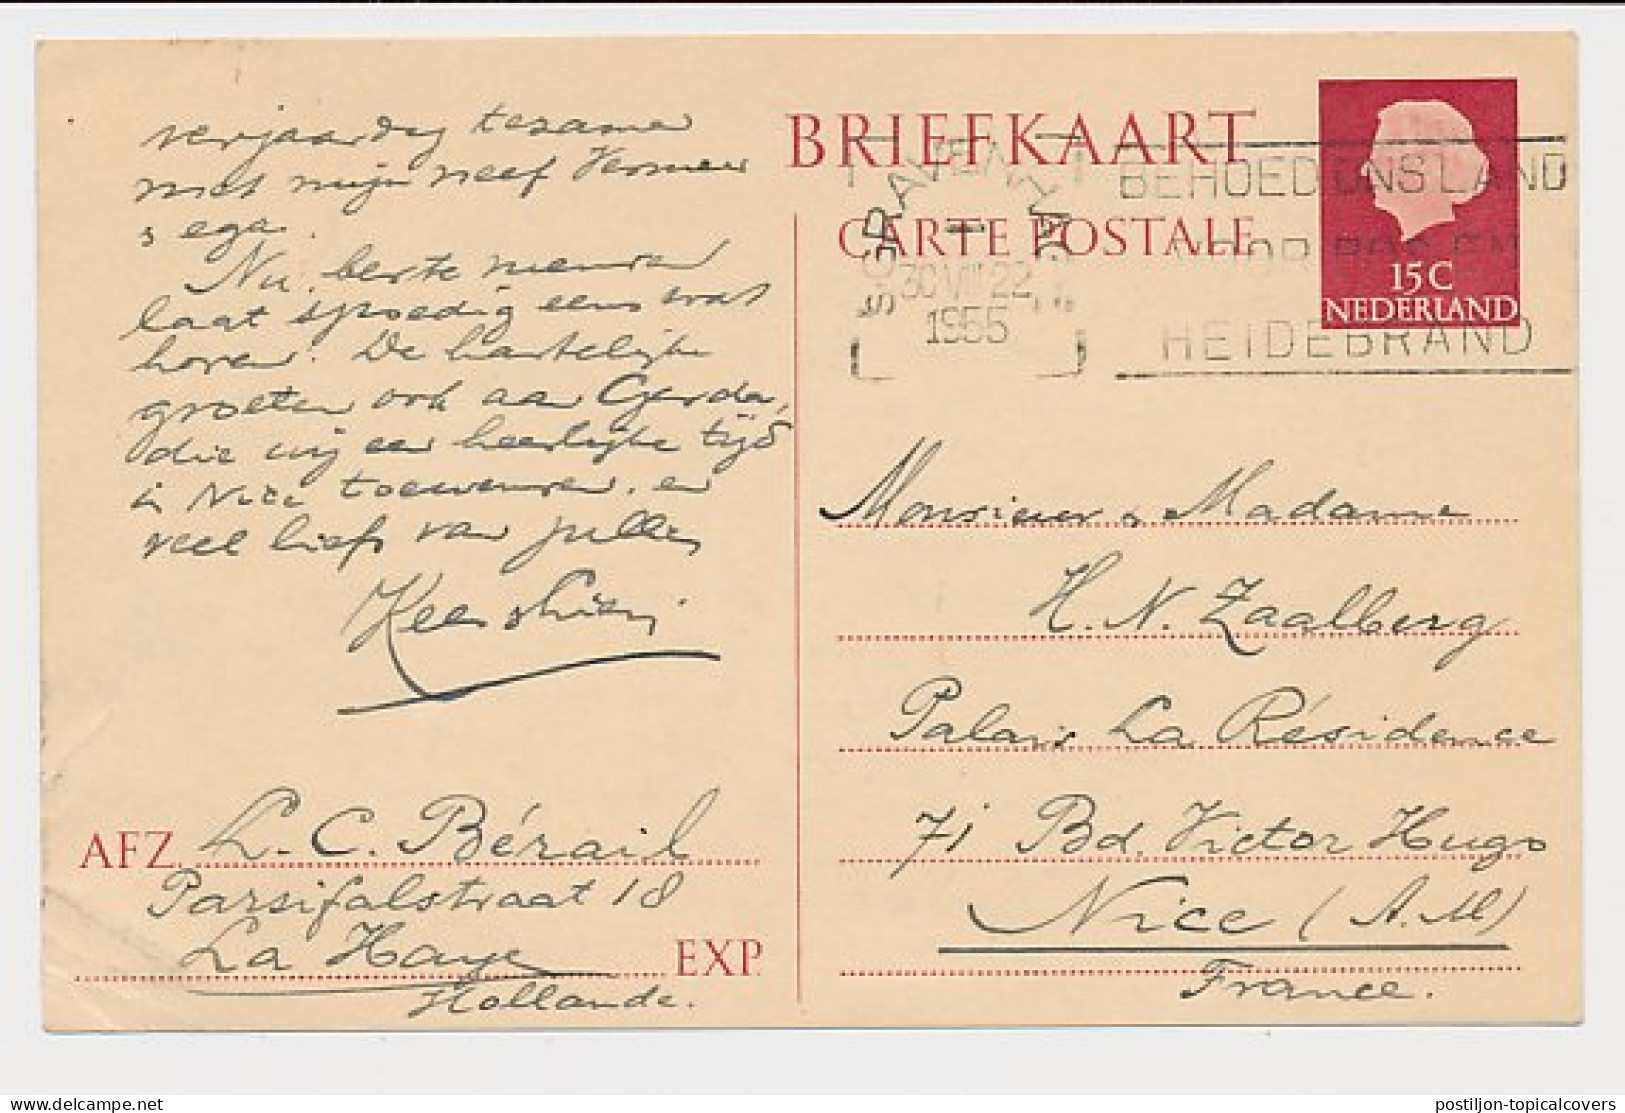 verjaardag tezamen
met mijn neef Vermeer
s ega.
Nu, beste mensen
laat spoedig eens wat
horen. De hartelijke
groeten ook aan Gerda,
die wij een heerlijke tijd
in Nice toewensen. en
veel liefs van jullie
Kees
AFZ. L. C. Bérail
Parsifalstraat 18
La Haye
EXP.
Hollande.
BRIEFKAART
CARTE POSTALE
'S-GRAVENHAGE
30 VIII 22
1955
BEHOED ONS LAND
VOOR BOS EN
HEIDEBRAND
15 C
NEDERLAND
Monsieur & Madame
H. N. Zaalberg
Palais La Résidence
71 Bd. Victor Hugo
Nice (A.M)
France.
delcampe.net
postiljon-topicalcovers